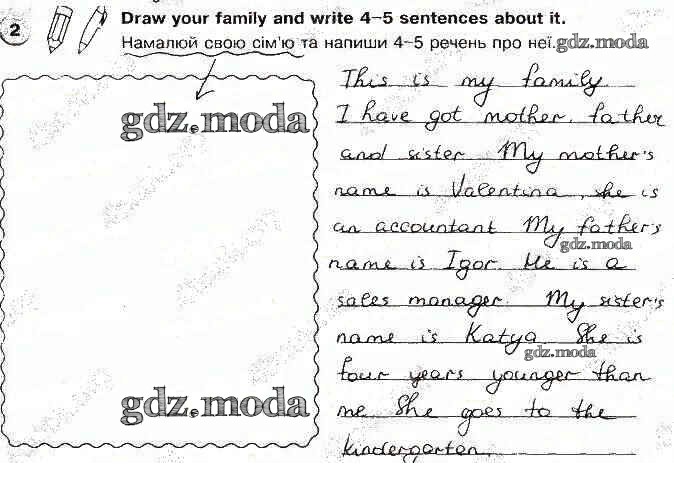 2 Draw your family and write 4–5 sentences about it.
Намалюй свою сім'ю та напиши 4–5 речень про неї.
gdz.moda
This is my family
I have got mother, father
gdz.moda
and sister My mother's
name is Valentina, she is
an accountant My father's
gdz.moda
name is Igor. He is a
sales manager. My sister's
name is Katya. She is
gdz.moda
four years younger than
me She goes to the
gdz.moda
kindergarten.